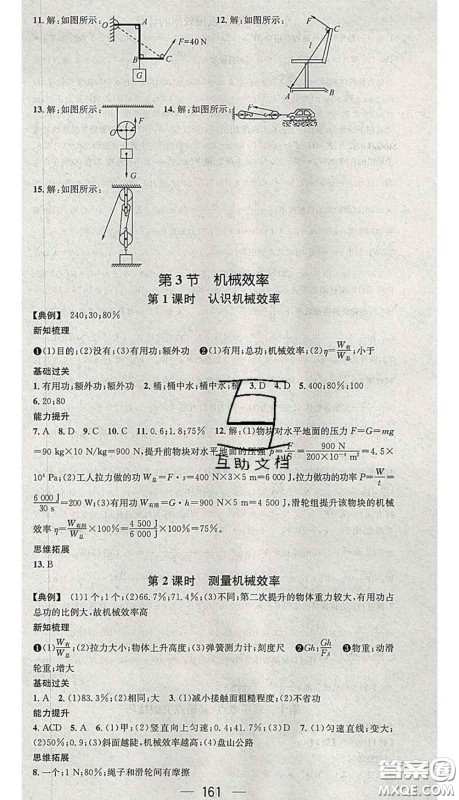 11. 解:如图所示:
O A F=40 N B C G
12. 解:如图所示:
F l A B
13. 解:如图所示:
O F G
14. 解:如图所示:
F
15. 解:如图所示:
第 3 节 机械效率
第 1 课时 认识机械效率
【典例】 240;30;80%
新知梳理
❶(1)目的;(2)没有;(3)有用功;额外功 ❷(1)有用;总功;机械效率;(2)η=W有/W总;小于
基础过关
1. 有用功;额外功 2. 桶;桶中水;桶中水;桶 3. D 4. D 5. 400;80%;100
6. 20;80
能力提升
7. A 8. D 9. D 10. C 11. 0.6;1.8;75% 12. 解:(1)物块对水平地面的压力 F=G=mg
=90 kg×10 N/kg=900 N,提升前物块对水平地面的压强 p=F/S=900 N/200×10⁻⁴ m²=4.5×
10⁴ Pa;(2)工人拉力做的功 W总=F·s=400 N×3×5 m=6 000 J,拉力做功的功率 P=W/t=
6 000 J/30 s=200 W;(3)有用功 W有用=G·h=900 N×5 m=4 500 J,滑轮组提升该物块的机械
效率 η=W有用/W总×100%=4 500 J/6 000 J×100%=75%。
思维拓展
13. B
第 2 课时 测量机械效率
【典例】 (1)1个;1个;(2)66.7%;71.4%;(3)不同;第二次提升的物体重力较大,有用功占
总功的比例大,故机械效率高
新知梳理
❶(1)W有/W总;(2)拉力大小;物体上升高度;(3)弹簧测力计;刻度尺 ❷Gh;Gh/Fs ❸物重;动滑
轮重;增大
基础过关
1. A 2. (1)83.3%;(2)相同;大 3. (1)减小接触面粗糙程度;(2)不省功
能力提升
4. ACD 5. A 6. (1)甲;(2)竖直向上匀速;(3)0.1;0.41;81.3%;(4)越大 7. (1)匀速直线;变大;
(2)50%;0.9;(3)斜面越陡,机械效率越高;(4)盘山公路
思维拓展
8. 一个;1 N;80%;绳子和滑轮间有摩擦
161
互助文档
答案圈
MXQE.COM